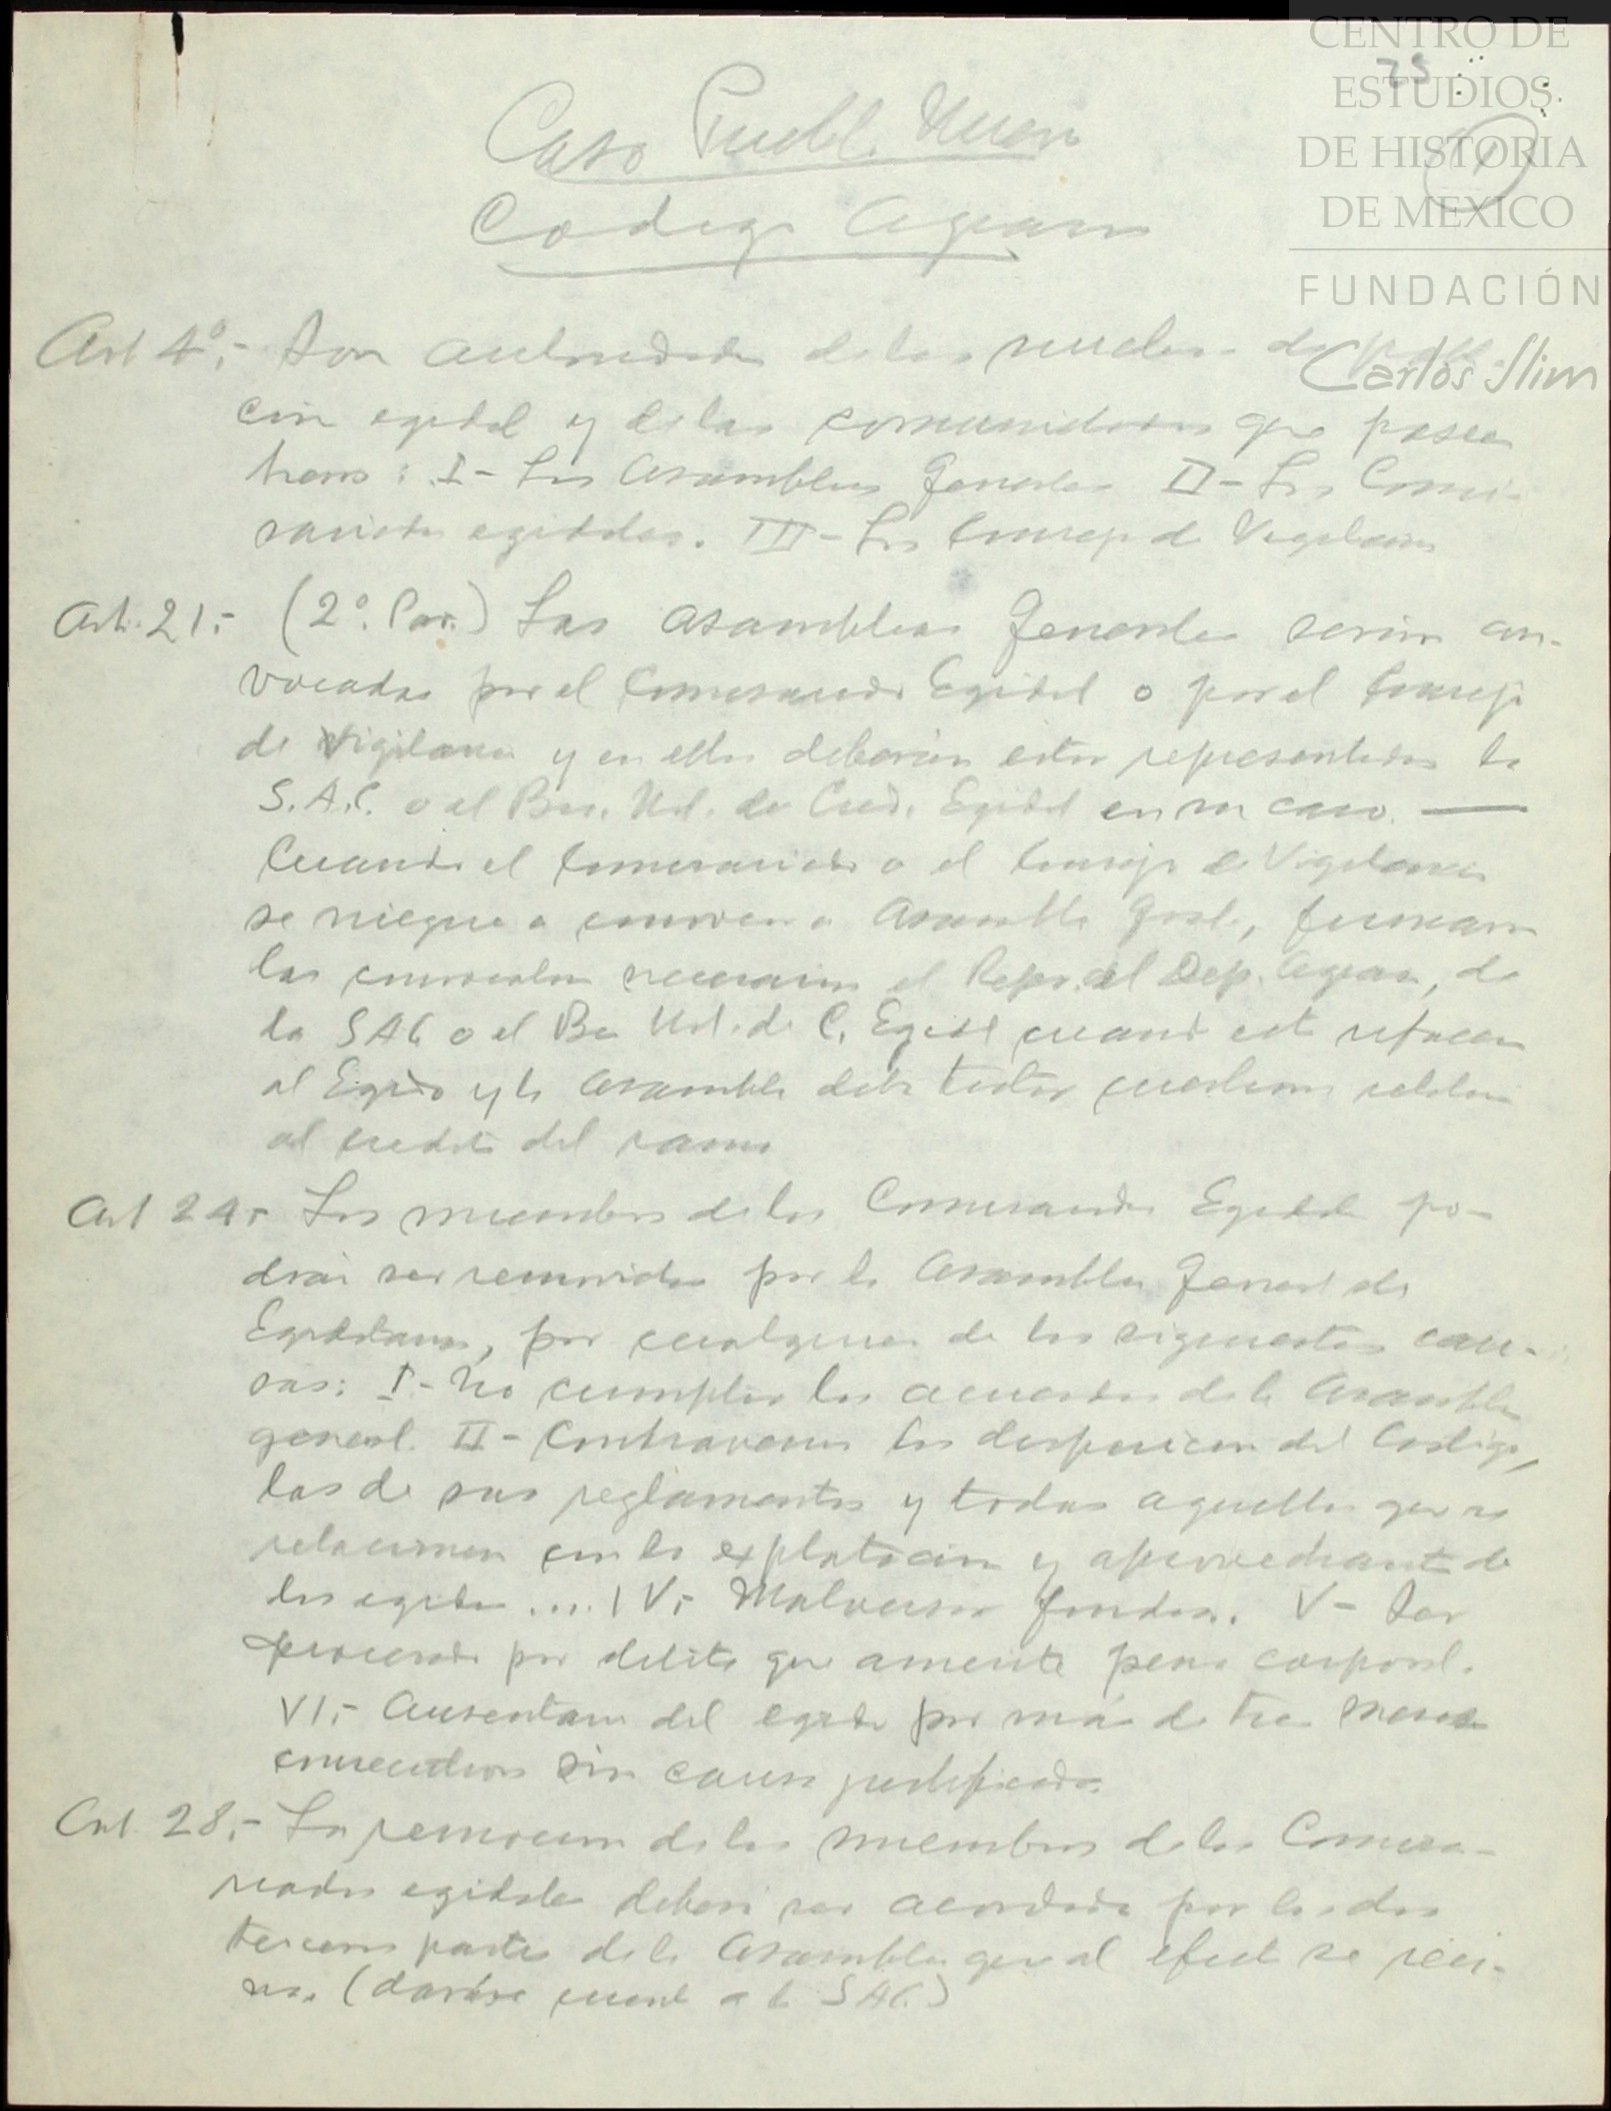 CENTRO DE
ESTUDIOS
DE HISTORIA
DE MEXICO
FUNDACIÓN
Carlos Slim
25
Caso Pueblo Nuevo
Codigo Agrario
Art 4º.- Son autoridades de los nucleos de pobla-
cion egidal y de las comunidades que posean
tierras: I- Las Asambleas Generales II- Los Comi-
sariados egidales. III- Los Consejos de Vigilancia
Art. 21.- (2º. Par.) Las asambleas Generales serán con-
vocadas por el Comisariado Egidal o por el Consejo
de Vigilancia y en ellas deberán estar representados la
S.A.C. o el Bco. Nal. de Cred. Egidal en su caso. —
Cuando el Comisariado o el Consejo de Vigilancia
se niegue a convocar a Asamblea Gral, firmaran
las convocatorias necesarias el Repr. del Dep. Agrar, de
la SAC o el Bco Nal. de C. Egidal cuando este refaccione
al Egido y la Asamblea deba tratar cuestiones relativas
al credito del ramo
Art 24.- Los miembros de los Comisariados Egidales po-
drán ser removidos por la Asamblea General de
Egidatarios, por cualquiera de las siguientes cau-
sas: I- No cumplir los acuerdos de la Asamblea
general. II- Contravenir las disposicion del Codigo,
las de sus reglamentos y todas aquellas que se
relacionen con la explotacion y aprovechamiento de
los egidos .... IV.- Malversar fondos. V- Ser
procesado por delito que amerite pena corporal.
VI.- Ausentarse del egido por más de tres meses
consecutivos sin causa justificada.
Art. 28.- La remocion de los miembros de los Comisa-
riados egidales deberá ser acordada por las dos
terceras partes de la Asamblea que al efecto se reu-
na. (daráse cuenta a la SAC.)